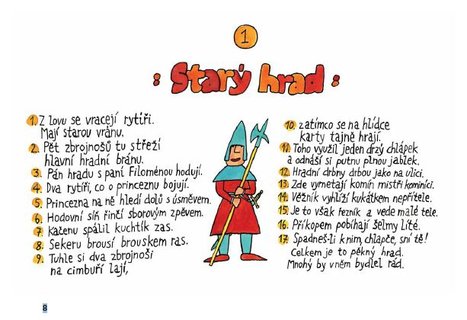 1
: Starý hrad :
1. Z lovu se vracejí rytíři.
Mají starou vránu.
2. Pět zbrojnošů tu střeží
hlavní hradní bránu.
3. Pán hradu s paní Filoménou hodují.
4. Dva rytíři, co o princeznu bojují.
5. Princezna na ně hledí dolů s úsměvem.
6. Hodovní síň řinčí sborovým zpěvem.
7. Kačenu spálil kuchtík zas.
8. Sekeru brousí brouskem ras.
9. Tuhle si dva zbrojnoši
na cimbuří lají,
10. zatímco se na hlídce
karty tajně hrají.
11. Toho využil jeden drzý chlápek
a odnáší si putnu plnou jablek.
12. Hradní drbny drbou jako na ulici.
13. Zde vymetají komín mistři kominíci.
14. Věžník vyhlíží kukátkem nepřítele.
15. Je to však řezník a vede malé tele.
16. Příkopem pobíhají šelmy lité.
17. Spadneš-li k nim, chlapče, sní tě!
Celkem je to pěkný hrad.
Mnohý by v něm bydlel rád.
8